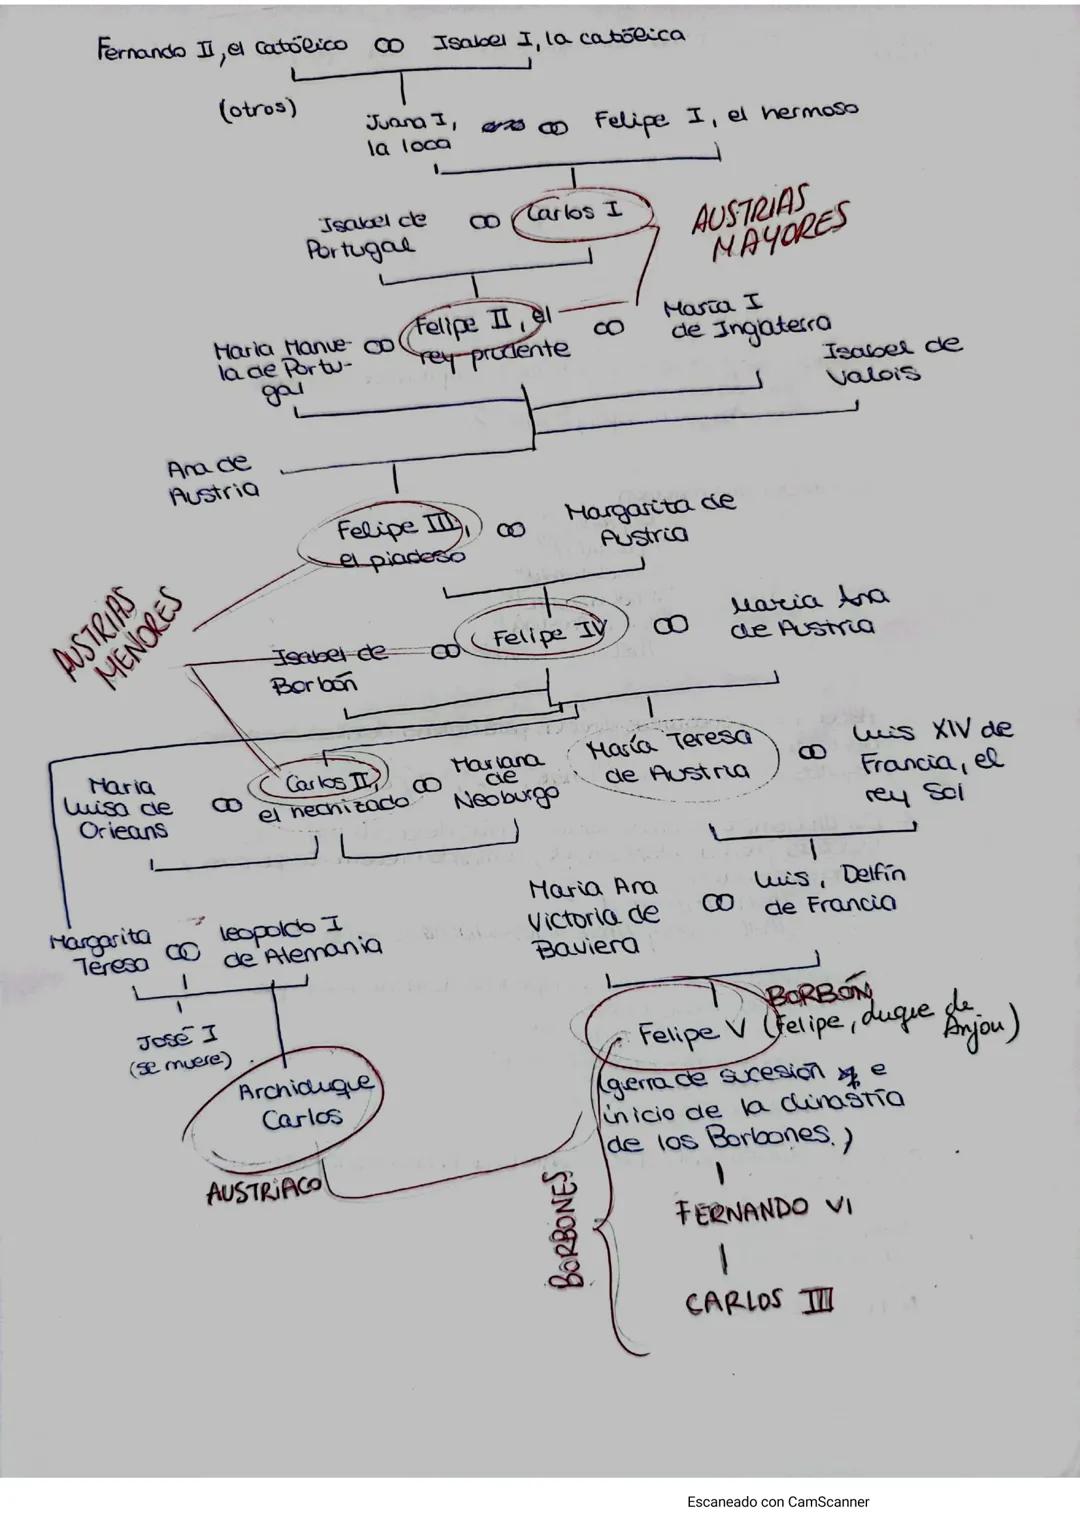 Fernando II, el católico ∞ Isabel I, la católica
(otros)
Juana I, ∞ Felipe I, el hermoso
la loca
Isabel de ∞ Carlos I
Portugal
AUSTRIAS
MAYORES
Maria Manue- ∞ Felipe II, el ∞ Maria I
la de Portu- rey prudente de Inglaterra
gal
Isabel de
Valois
Ana de
Austria
Felipe III, ∞ Margarita de
el piadoso Austria
AUSTRIAS
MENORES
Isabel de ∞ Felipe IV ∞ Maria Ana
Borbón de Austria
Maria ∞ Carlos II, ∞ Mariana
Luisa de el hechizado de
Orleans Neoburgo
María Teresa ∞ Luis XIV de
de Austria Francia, el
rey Sol
Maria Ana ∞ Luis, Delfín
Victoria de de Francia
Baviera
Margarita ∞ Leopoldo I
Teresa de Alemania
José I
(se muere)
Archiduque
Carlos
AUSTRIACO
BORBÓN
Felipe V (Felipe, duque de
Anjou)
(gerra de sucesión e
inicio de la dinastía
de los Borbones.)
BORBONES
FERNANDO VI
CARLOS III
Escaneado con CamScanner